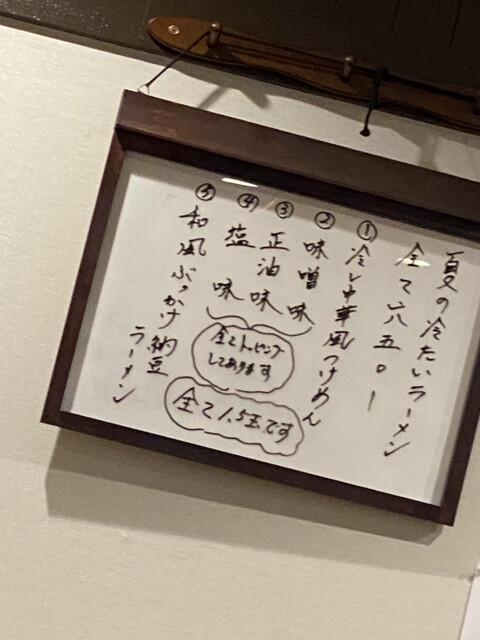 夏の冷たいラーメン
全て八五〇ー
①冷し中華風つけめん
②味噌味
③正油味
④塩味
全てトッピング
してあります
全て1.5玉です
⑤和風ぶっかけ納豆
ラーメン